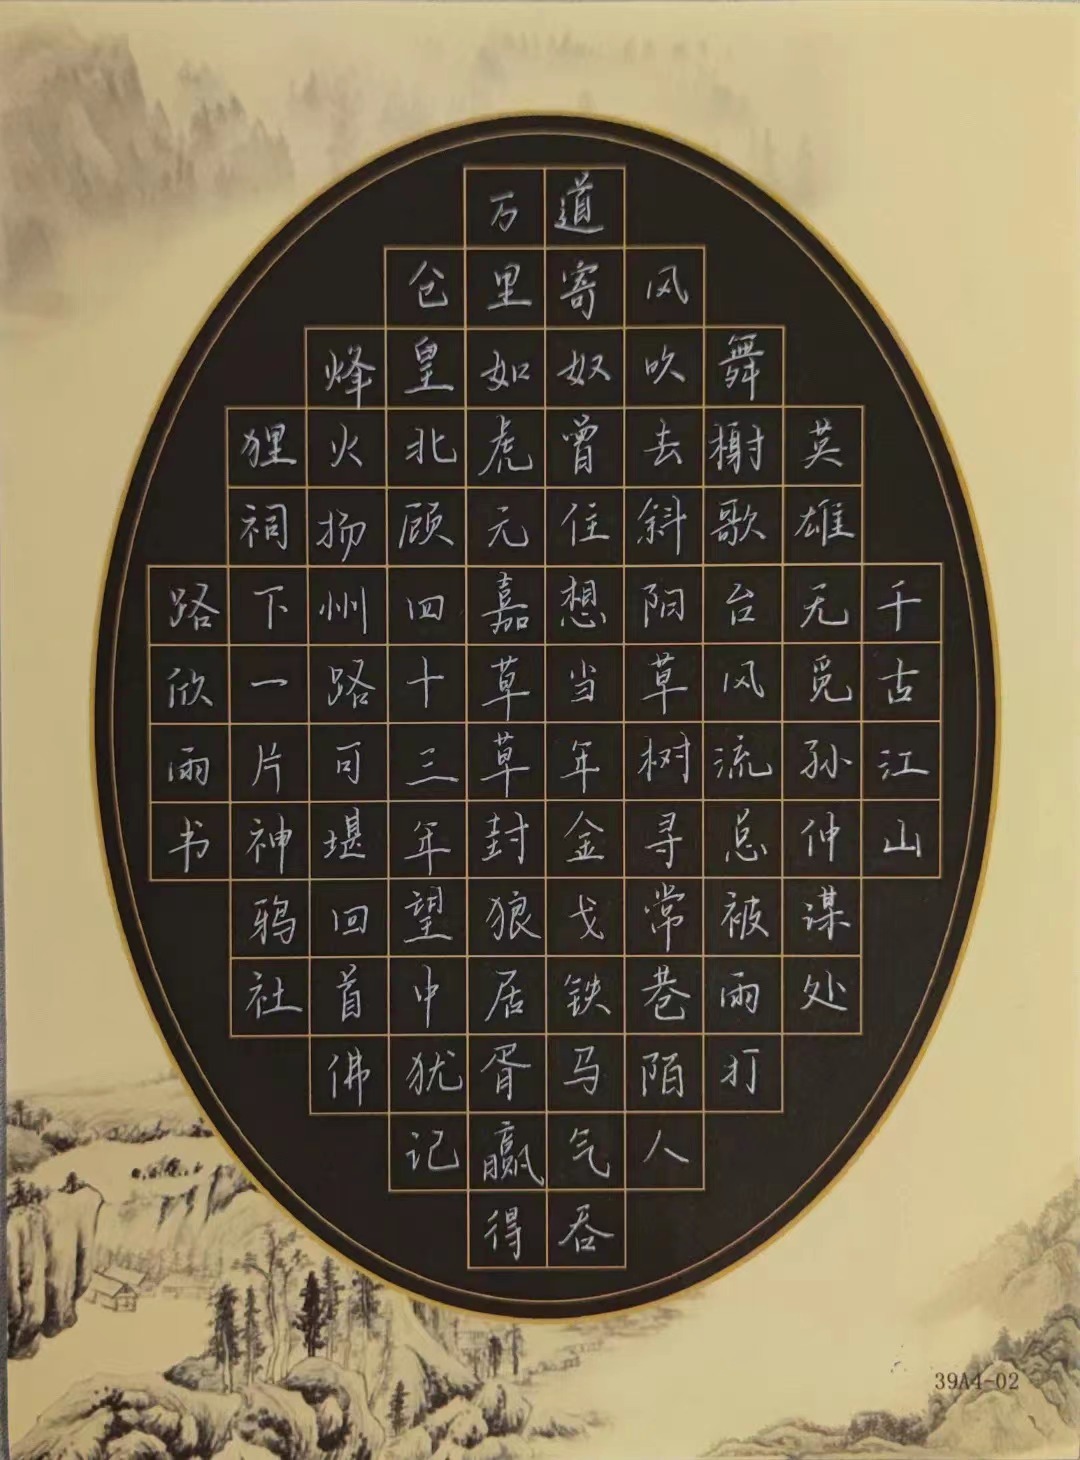 千古江山
英雄无觅孙仲谋处
舞榭歌台风流总被雨打
风吹去斜阳草树寻常巷陌人
道寄奴曾住想当年金戈铁马气吞
万里如虎元嘉草草封狼居胥赢得
仓皇北顾四十三年望中犹记
烽火扬州路可堪回首佛
狸祠下一片神鸦社
路欣雨书
39A4-02